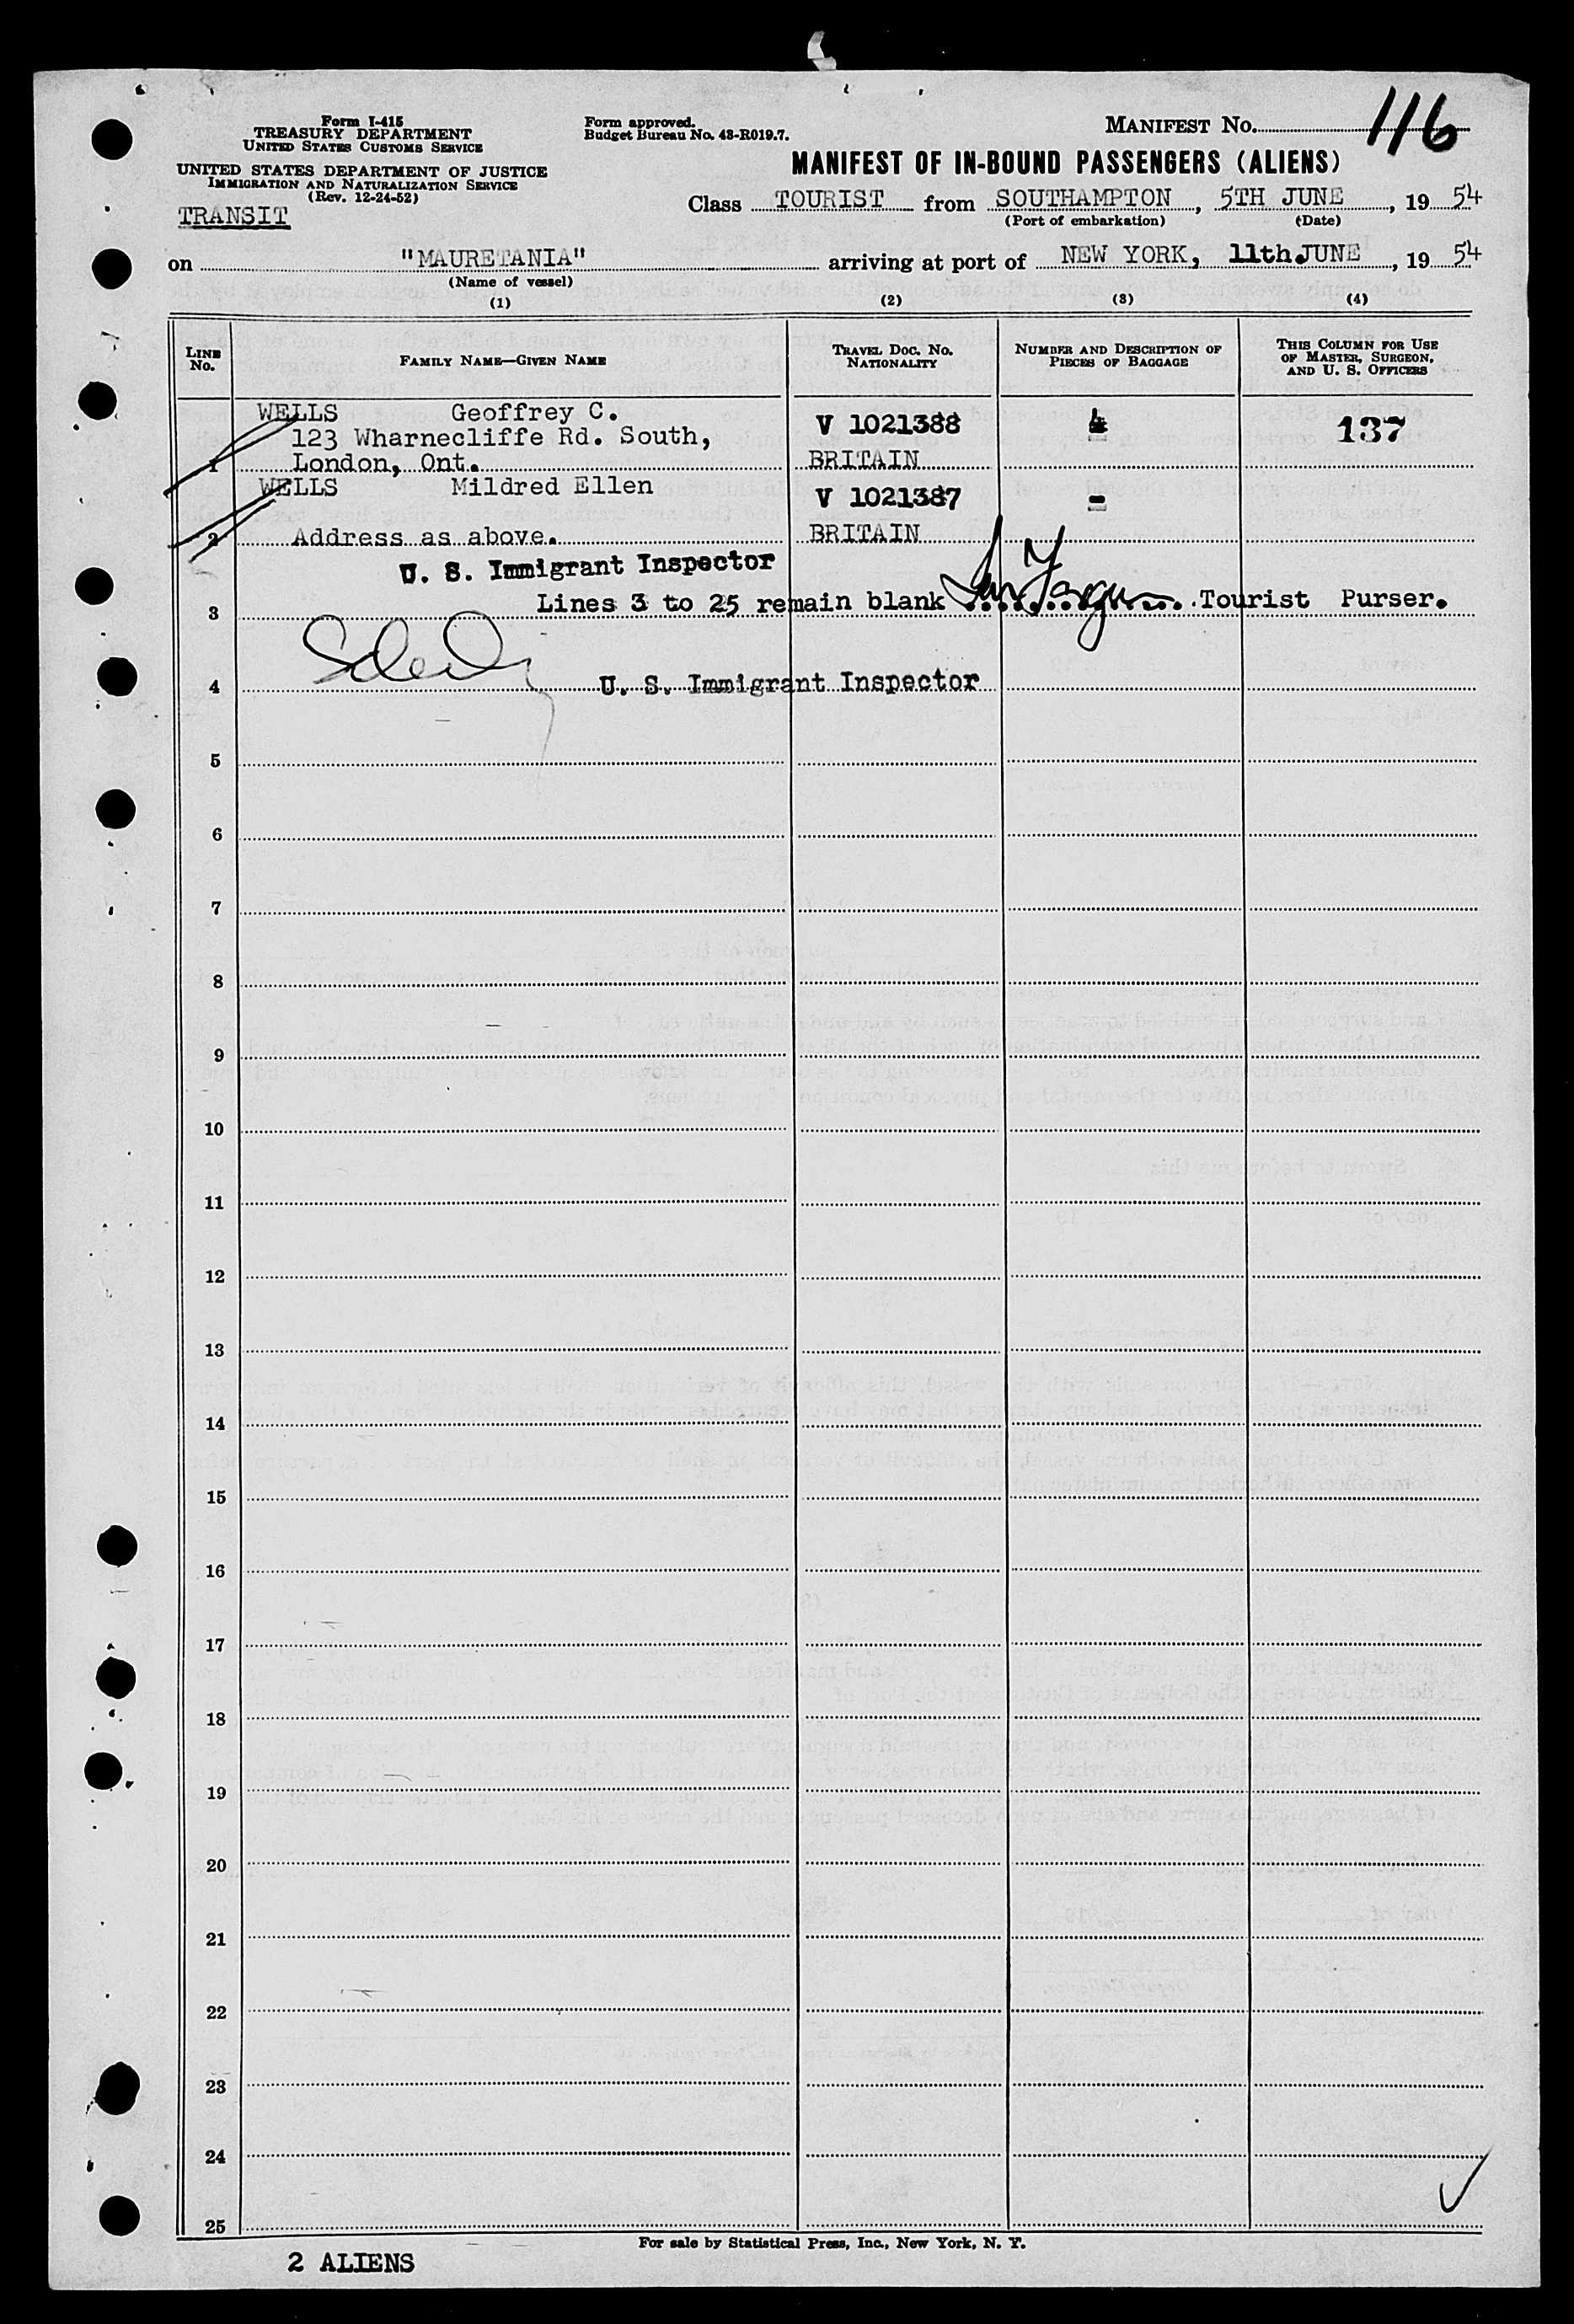 Form I-415
TREASURY DEPARTMENT
UNITED STATES CUSTOMS SERVICE
UNITED STATES DEPARTMENT OF JUSTICE
IMMIGRATION AND NATURALIZATION SERVICE
(Rev. 12-24-52)
TRANSIT
Form approved.
Budget Bureau No. 43-R019.7.
MANIFEST NO. 116
MANIFEST OF IN-BOUND PASSENGERS (ALIENS)
Class TOURIST from SOUTHAMPTON, 5TH JUNE, 1954
(Port of embarkation) (Date)
on "MAURETANIA" arriving at port of NEW YORK, 11th JUNE, 1954
(Name of vessel)
(1) (2) (3) (4)
LINE NO. FAMILY NAME—GIVEN NAME TRAVEL DOC. NO. NATIONALITY NUMBER AND DESCRIPTION OF PIECES OF BAGGAGE THIS COLUMN FOR USE OF MASTER, SURGEON, AND U. S. OFFICERS
WELLS Geoffrey C. V 1021388 4 137
123 Wharnecliffe Rd. South,
1 London, Ont. BRITAIN
WELLS Mildred Ellen V 1021387 -
2 Address as above. BRITAIN
U. S. Immigrant Inspector
3 Lines 3 to 25 remain blank Tourist Purser.
4 U. S. Immigrant Inspector
5
6
7
8
9
10
11
12
13
14
15
16
17
18
19
20
21
22
23
24
25
For sale by Statistical Press, Inc., New York, N. Y.
2 ALIENS